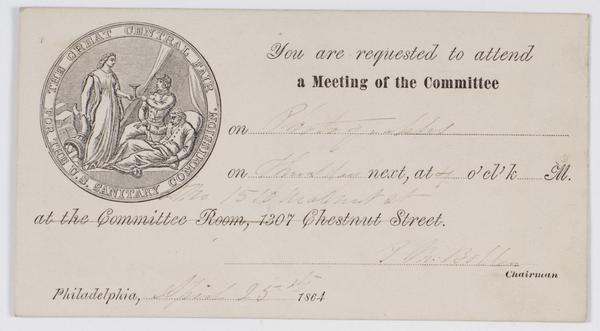 THE GREAT CENTRAL FAIR
FOR THE U.S. SANITARY COMMISSION.
You are requested to attend
a Meeting of the Committee
on Photographs
on Thursday next, at 4 o'cl'k M.
No 1518 Walnut st
at the Committee Room, 1307 Chestnut Street.
Chairman
Philadelphia, April 25th 1864